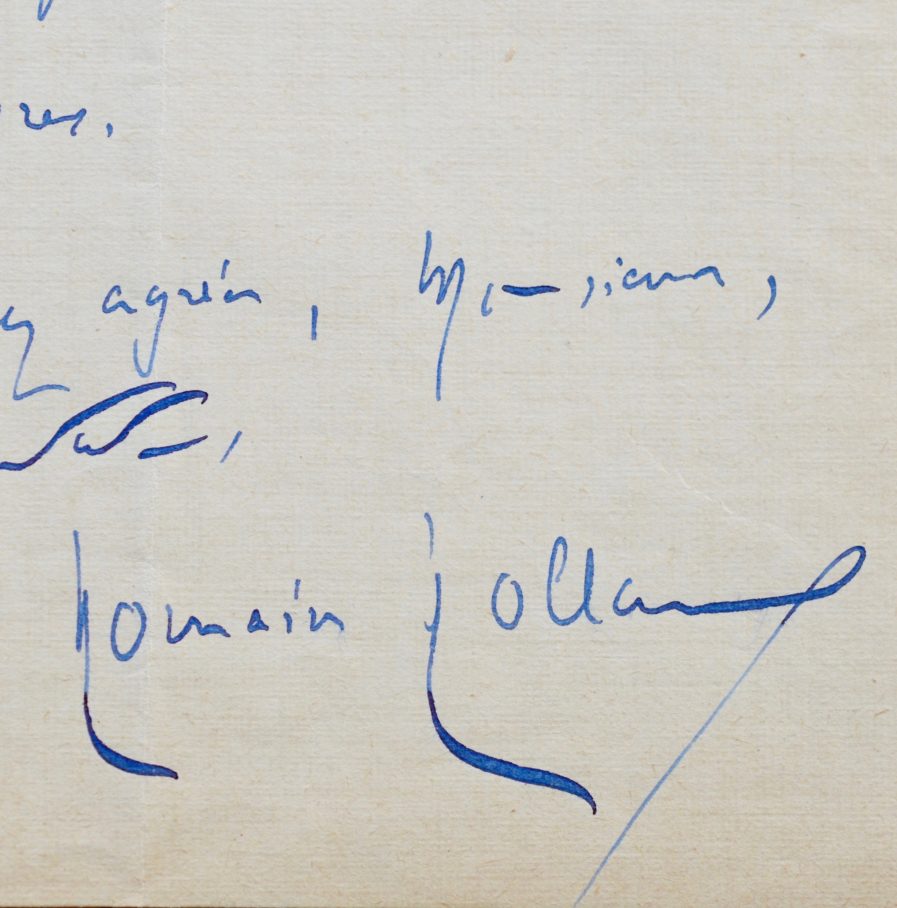 res.
agréer, Monsieur,
Romain Rolland